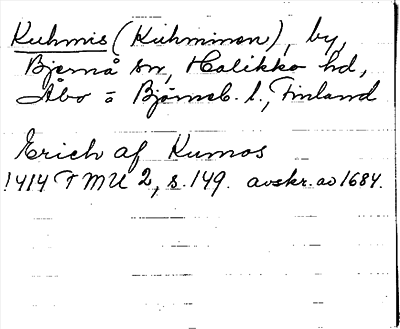 Kuhmis (Kuhminen), by,
Bjernå sn, Halikko hd,
Åbo o Björneb. l., Finland
Erich af Kumos
1414 T MU 2, s. 149. avskr. av 1684.